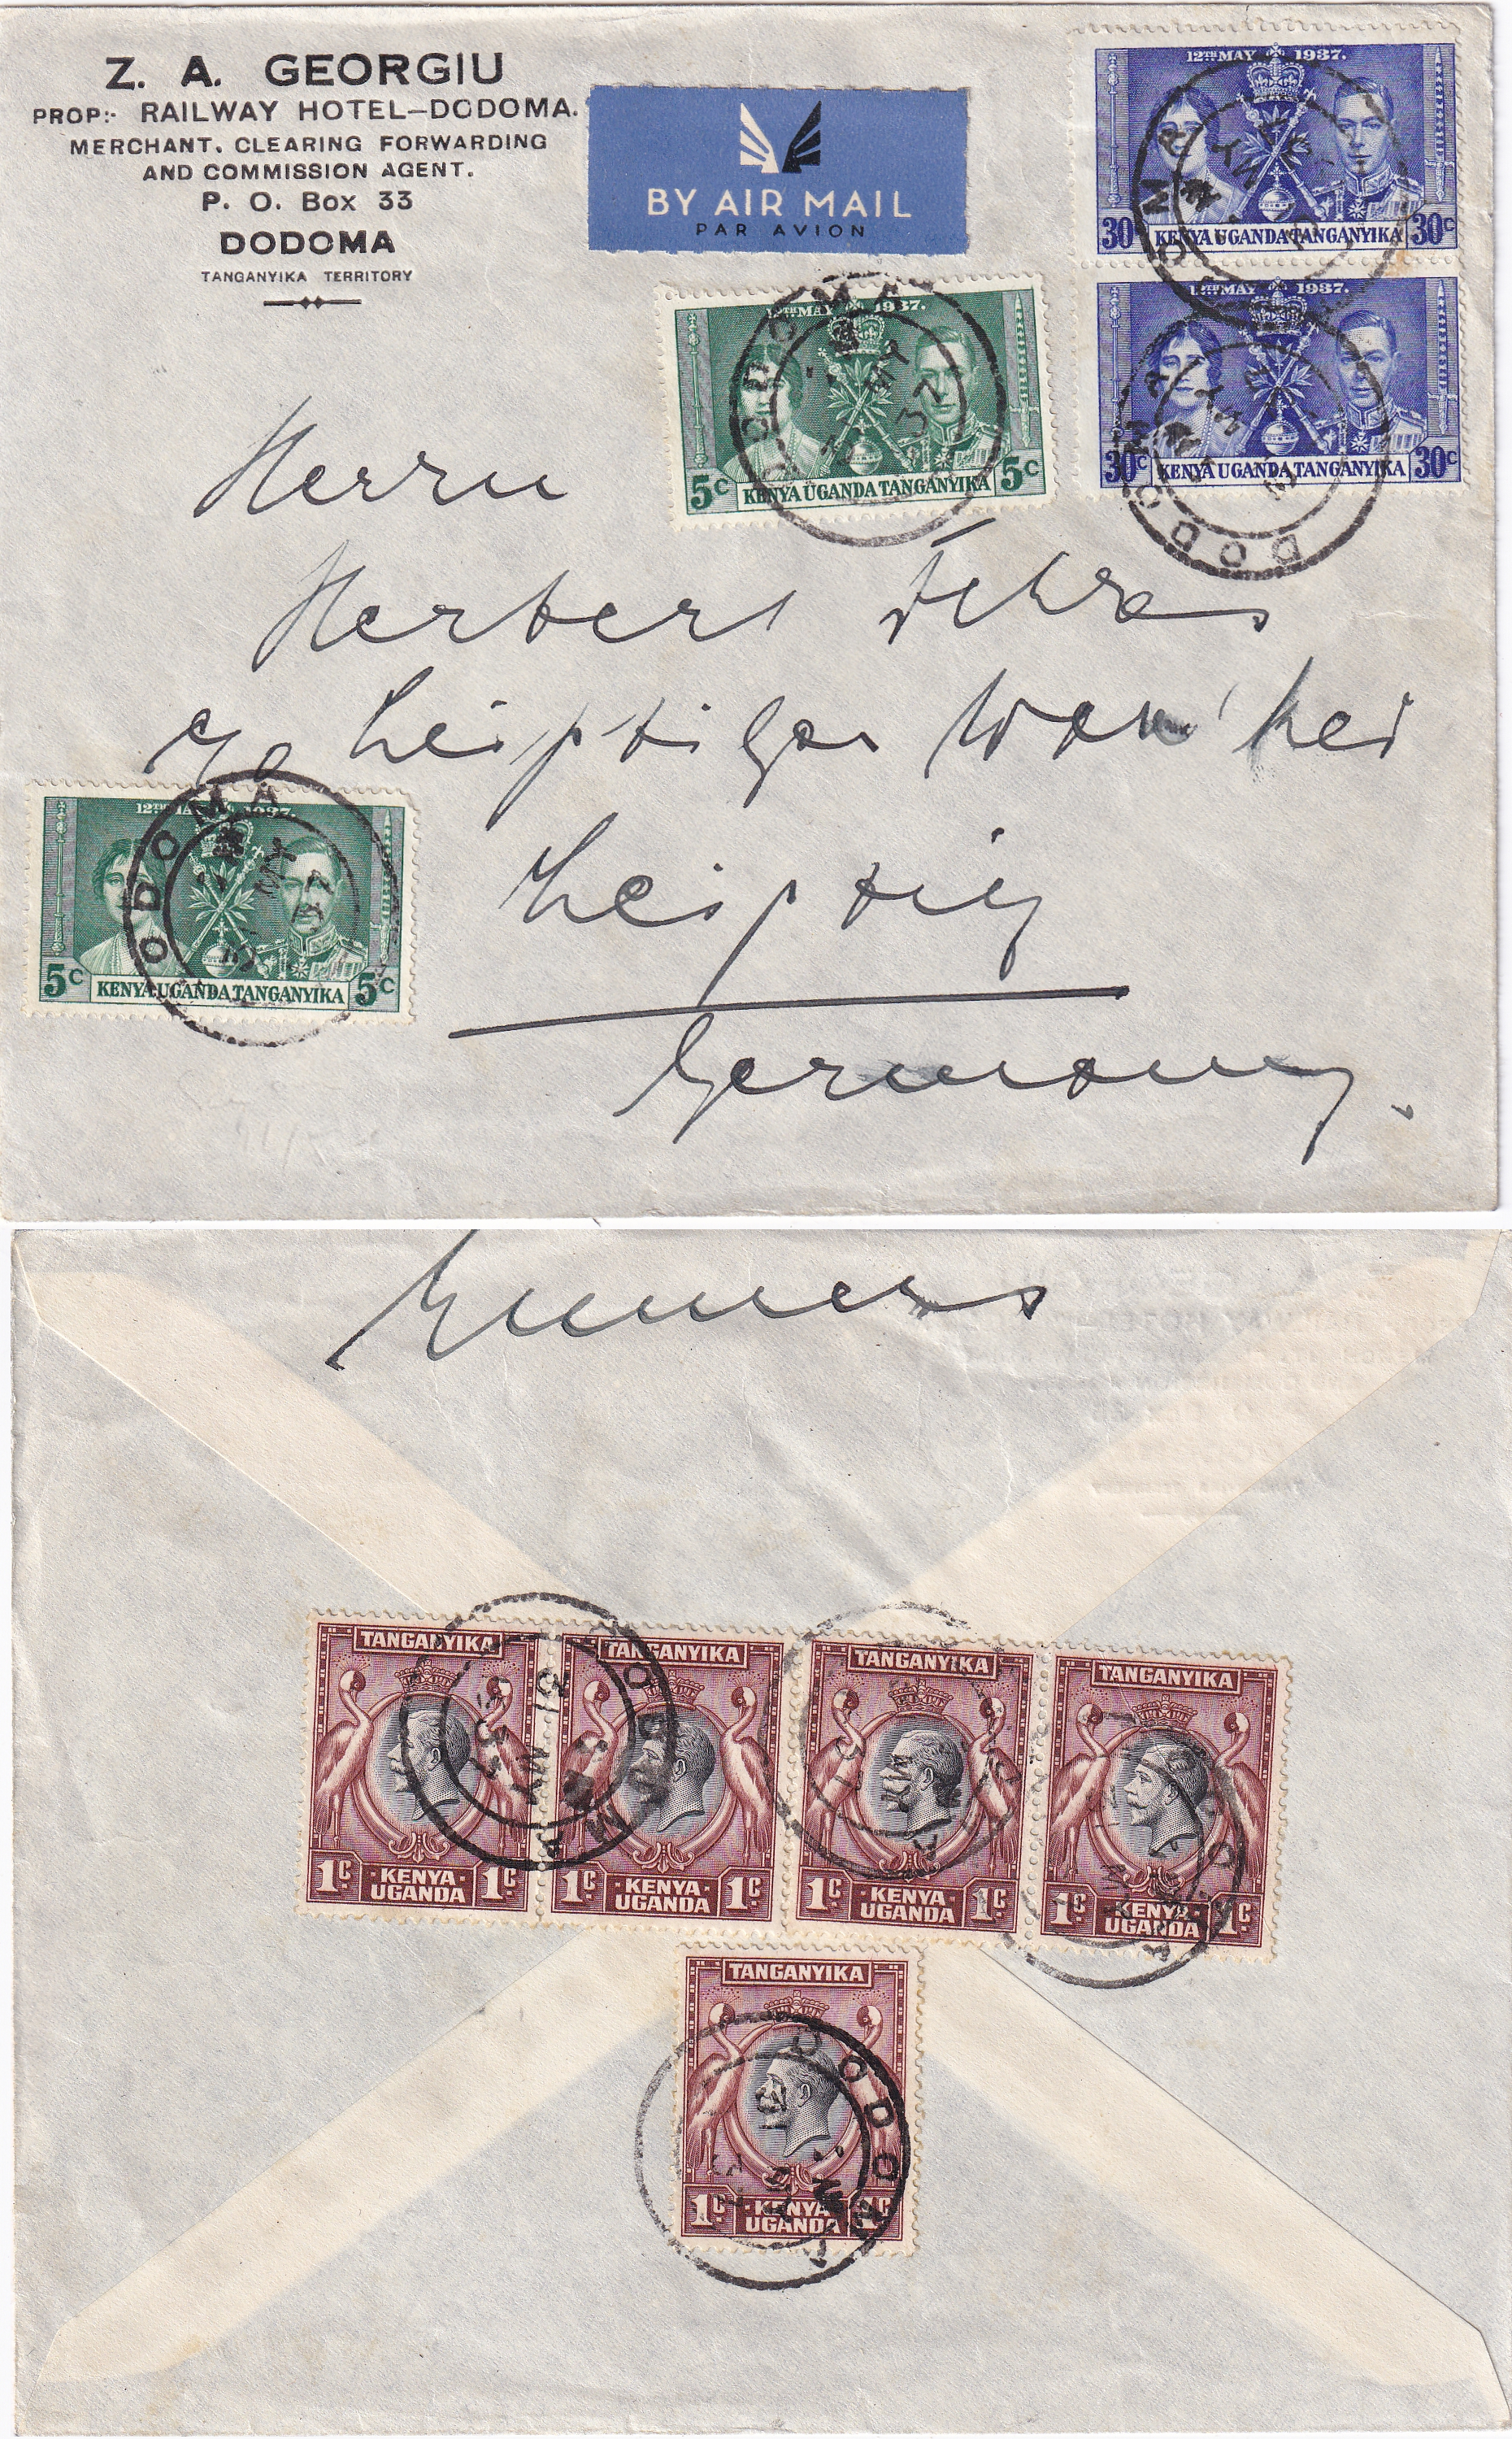 Z. A. GEORGIU
PROP:- RAILWAY HOTEL–DODOMA.
MERCHANT, CLEARING FORWARDING
AND COMMISSION AGENT.
P. O. Box 33
DODOMA
TANGANYIKA TERRITORY
BY AIR MAIL
PAR AVION
12TH MAY 1937.
30C KENYA UGANDA TANGANYIKA 30C
12TH MAY 1937.
30C KENYA UGANDA TANGANYIKA 30C
12TH MAY 1937.
5C KENYA UGANDA TANGANYIKA 5C
DODOMA
31 MY 37
DODOMA
Herrn
Herbert
c/o Leipziger
Leipzig
Germany.
12TH MAY 1937.
5C KENYA UGANDA TANGANYIKA 5C
DODOMA
TANGANYIKA
1C · KENYA · UGANDA 1C
TANGANYIKA
1C · KENYA · UGANDA 1C
TANGANYIKA
1C · KENYA · UGANDA 1C
TANGANYIKA
1C · KENYA · UGANDA 1C
DODOMA
31 MY 37
TANGANYIKA
1C · KENYA · UGANDA 1C
DODOMA